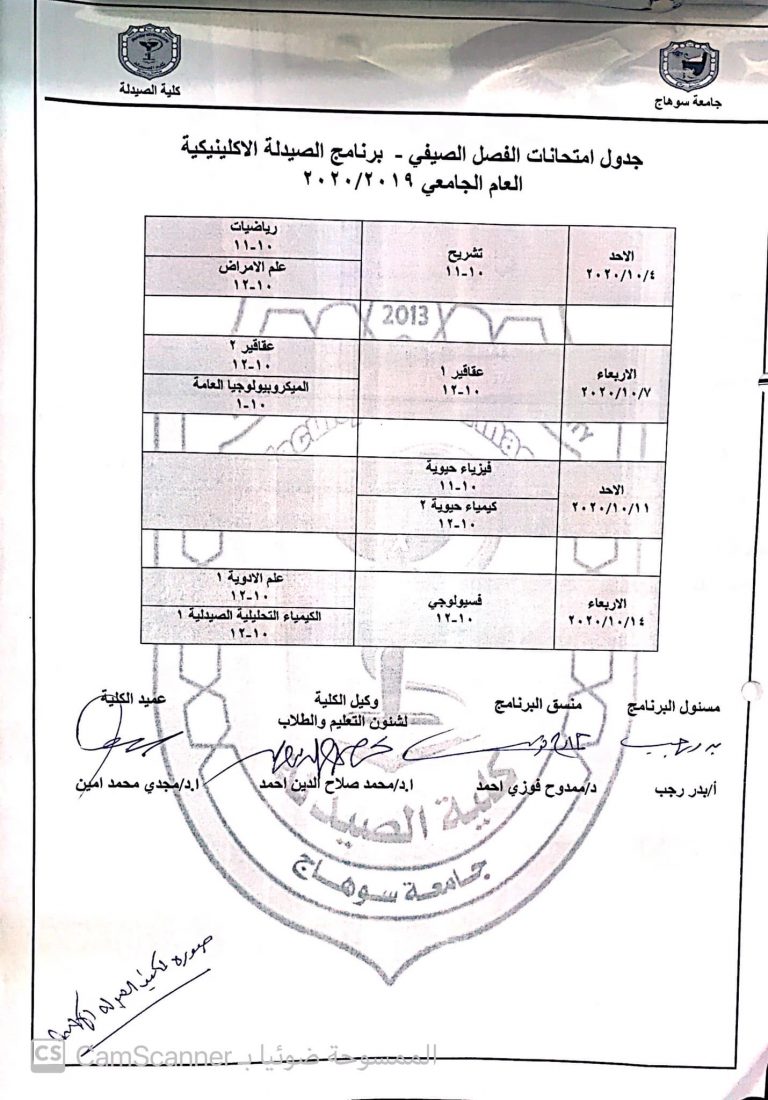 جامعة سوهاج
كلية الصيدلة
جدول امتحانات الفصل الصيفي - برنامج الصيدلة الاكلينيكية
العام الجامعي ٢٠٢٠/٢٠١٩
الاحد
٢٠٢٠/١٠/٤
تشريح
١٠-١١
رياضيات
١٠-١١
علم الامراض
١٠-١٢
2013
الاربعاء
٢٠٢٠/١٠/٧
عقاقير ١
١٠-١٢
عقاقير ٢
١٠-١٢
الميكروبيولوجيا العامة
١٠-١
الاحد
٢٠٢٠/١٠/١١
فيزياء حيوية
١٠-١١
كيمياء حيوية ٢
١٠-١٢
الاربعاء
٢٠٢٠/١٠/١٤
فسيولوجي
١٠-١٢
علم الادوية ١
١٠-١٢
الكيمياء التحليلية الصيدلية ١
١٠-١٢
مسئول البرنامج
منسق البرنامج
وكيل الكلية
لشئون التعليم والطلاب
عميد الكلية
أ/بدر رجب
د/ممدوح فوزي احمد
ا.د/محمد صلاح الدين احمد
ا.د/مجدي محمد امين
كلية الصيدلة
جامعة سوهاج
CS CamScanner الممسوحة ضوئيا بـ